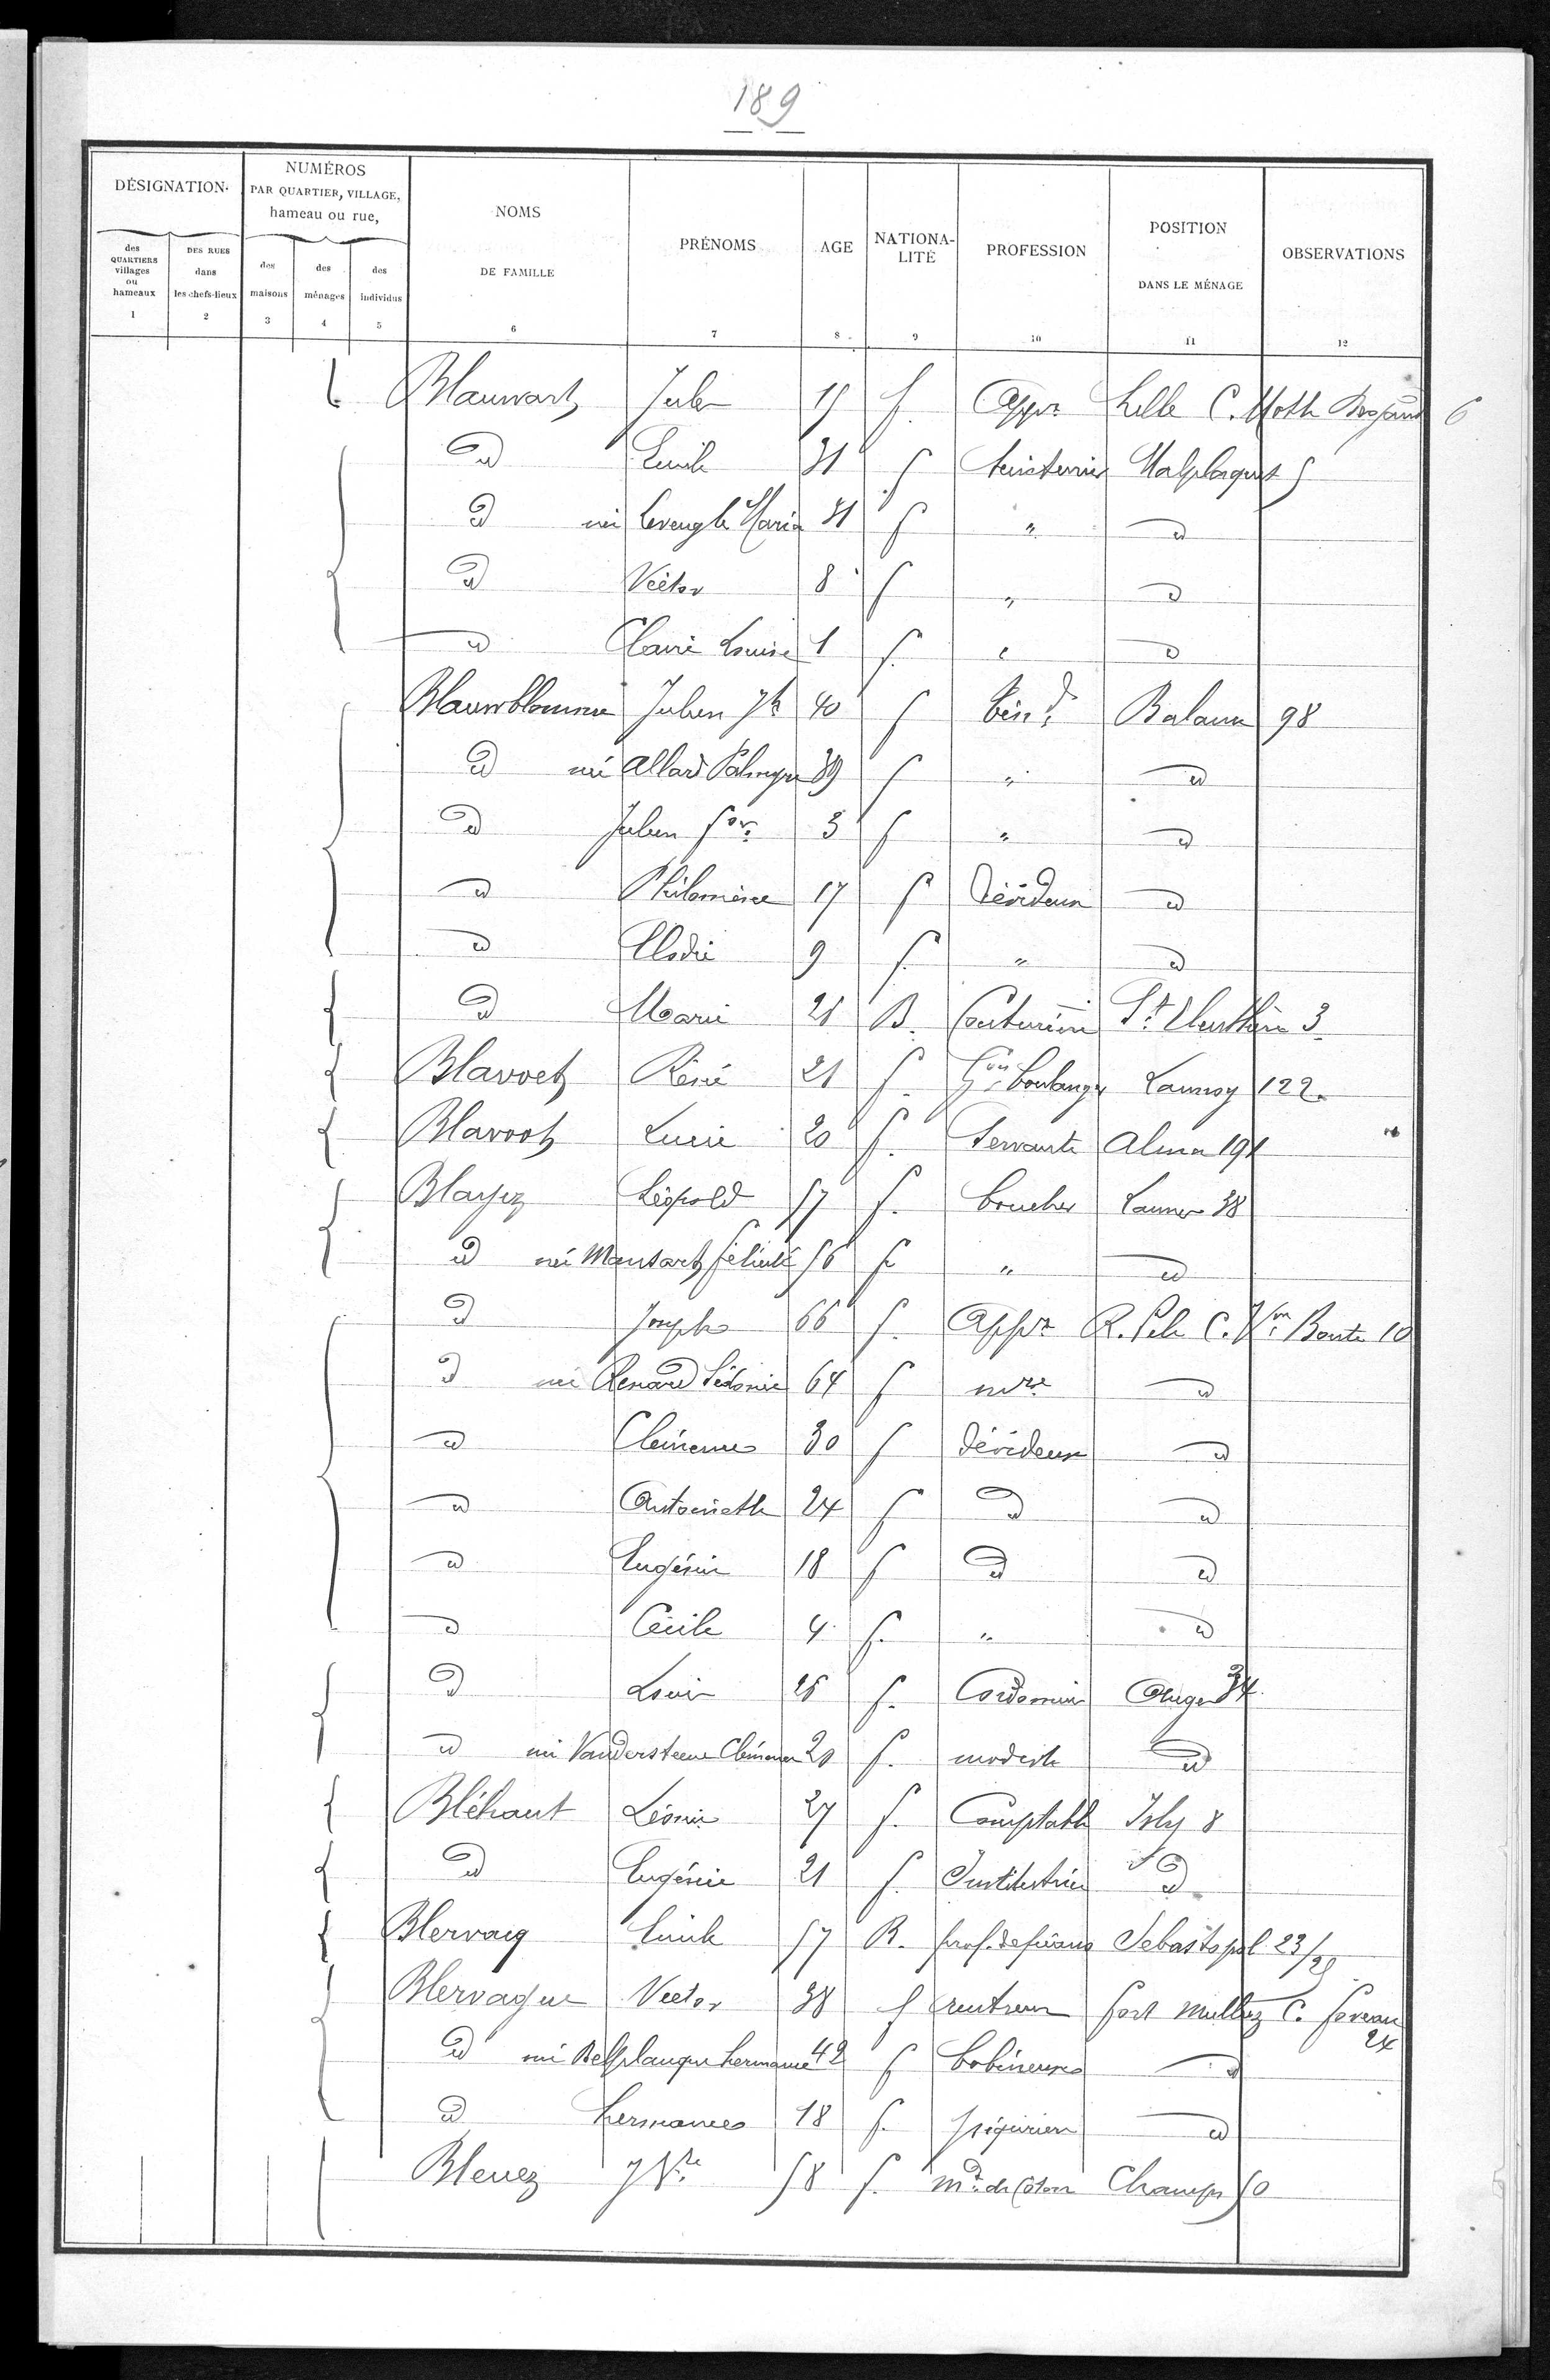 189
DÉSIGNATION
NUMÉROS
PAR QUARTIER, VILLAGE,
hameau ou rue,
NOMS
DE FAMILLE
PRÉNOMS
AGE
NATIONA-
LITÉ
PROFESSION
POSITION
DANS LE MÉNAGE
OBSERVATIONS
des
QUARTIERS
villages
ou
hameaux
DES RUES
dans
les chefs-lieux
des
maisons
des
ménages
des
individus
1 2 3 4 5 6 7 8 9 10 11 12
Blauwart Jules f. Appr Lille C. 6
d Emile 31 f teinturier Malplaquet
d née Maria 31 f " d
d Victor 8 f " d
d Claire Louise 1 f. " d
Blauwblomme Julien Jh 40 f Balann 98
d née Allard Palmyre 39 f " d
d Julien 3 f " d
d Philomène 17 f dévideuse d
d Elodie 9 f. " d
d Marie 21 B. Couturière St Eleuthère 3
Blavoet René 21 f. Gon boulanger Lannoy 122.
Blavoet Lucie 20 f. Servante Alma 191
Blayez Léopold 57 f. boucher Lannoy 38
d née Mansart félicité 56 f " d
d Joseph 66 f. Appr C. Bonte 10
d née Renard Sidonie 64 f mre d
d Clémence 30 f dévideuse d
d Antoinette 24 f d d
d Eugénie 18 f d d
d Cécile 4 f. " d
d Louis 25 f. Cordonnier 34
d née Vandersteene Clémence 20 f. modiste d
Bléhaut Léonie 27 f. Comptable Isly 8
d Eugénie 21 f. Institutrice d
Blervacq Emile 57 B. prof. de piano Sebastopol 23/25
Blervaque Victor 38 f rentreur fort mulliez C. 24
d née Delplanque hermance 42 f bobineuse d
d hermance 18 f. piqurière d
Bleuez J Bte 58 f. md de Coton Champs 50